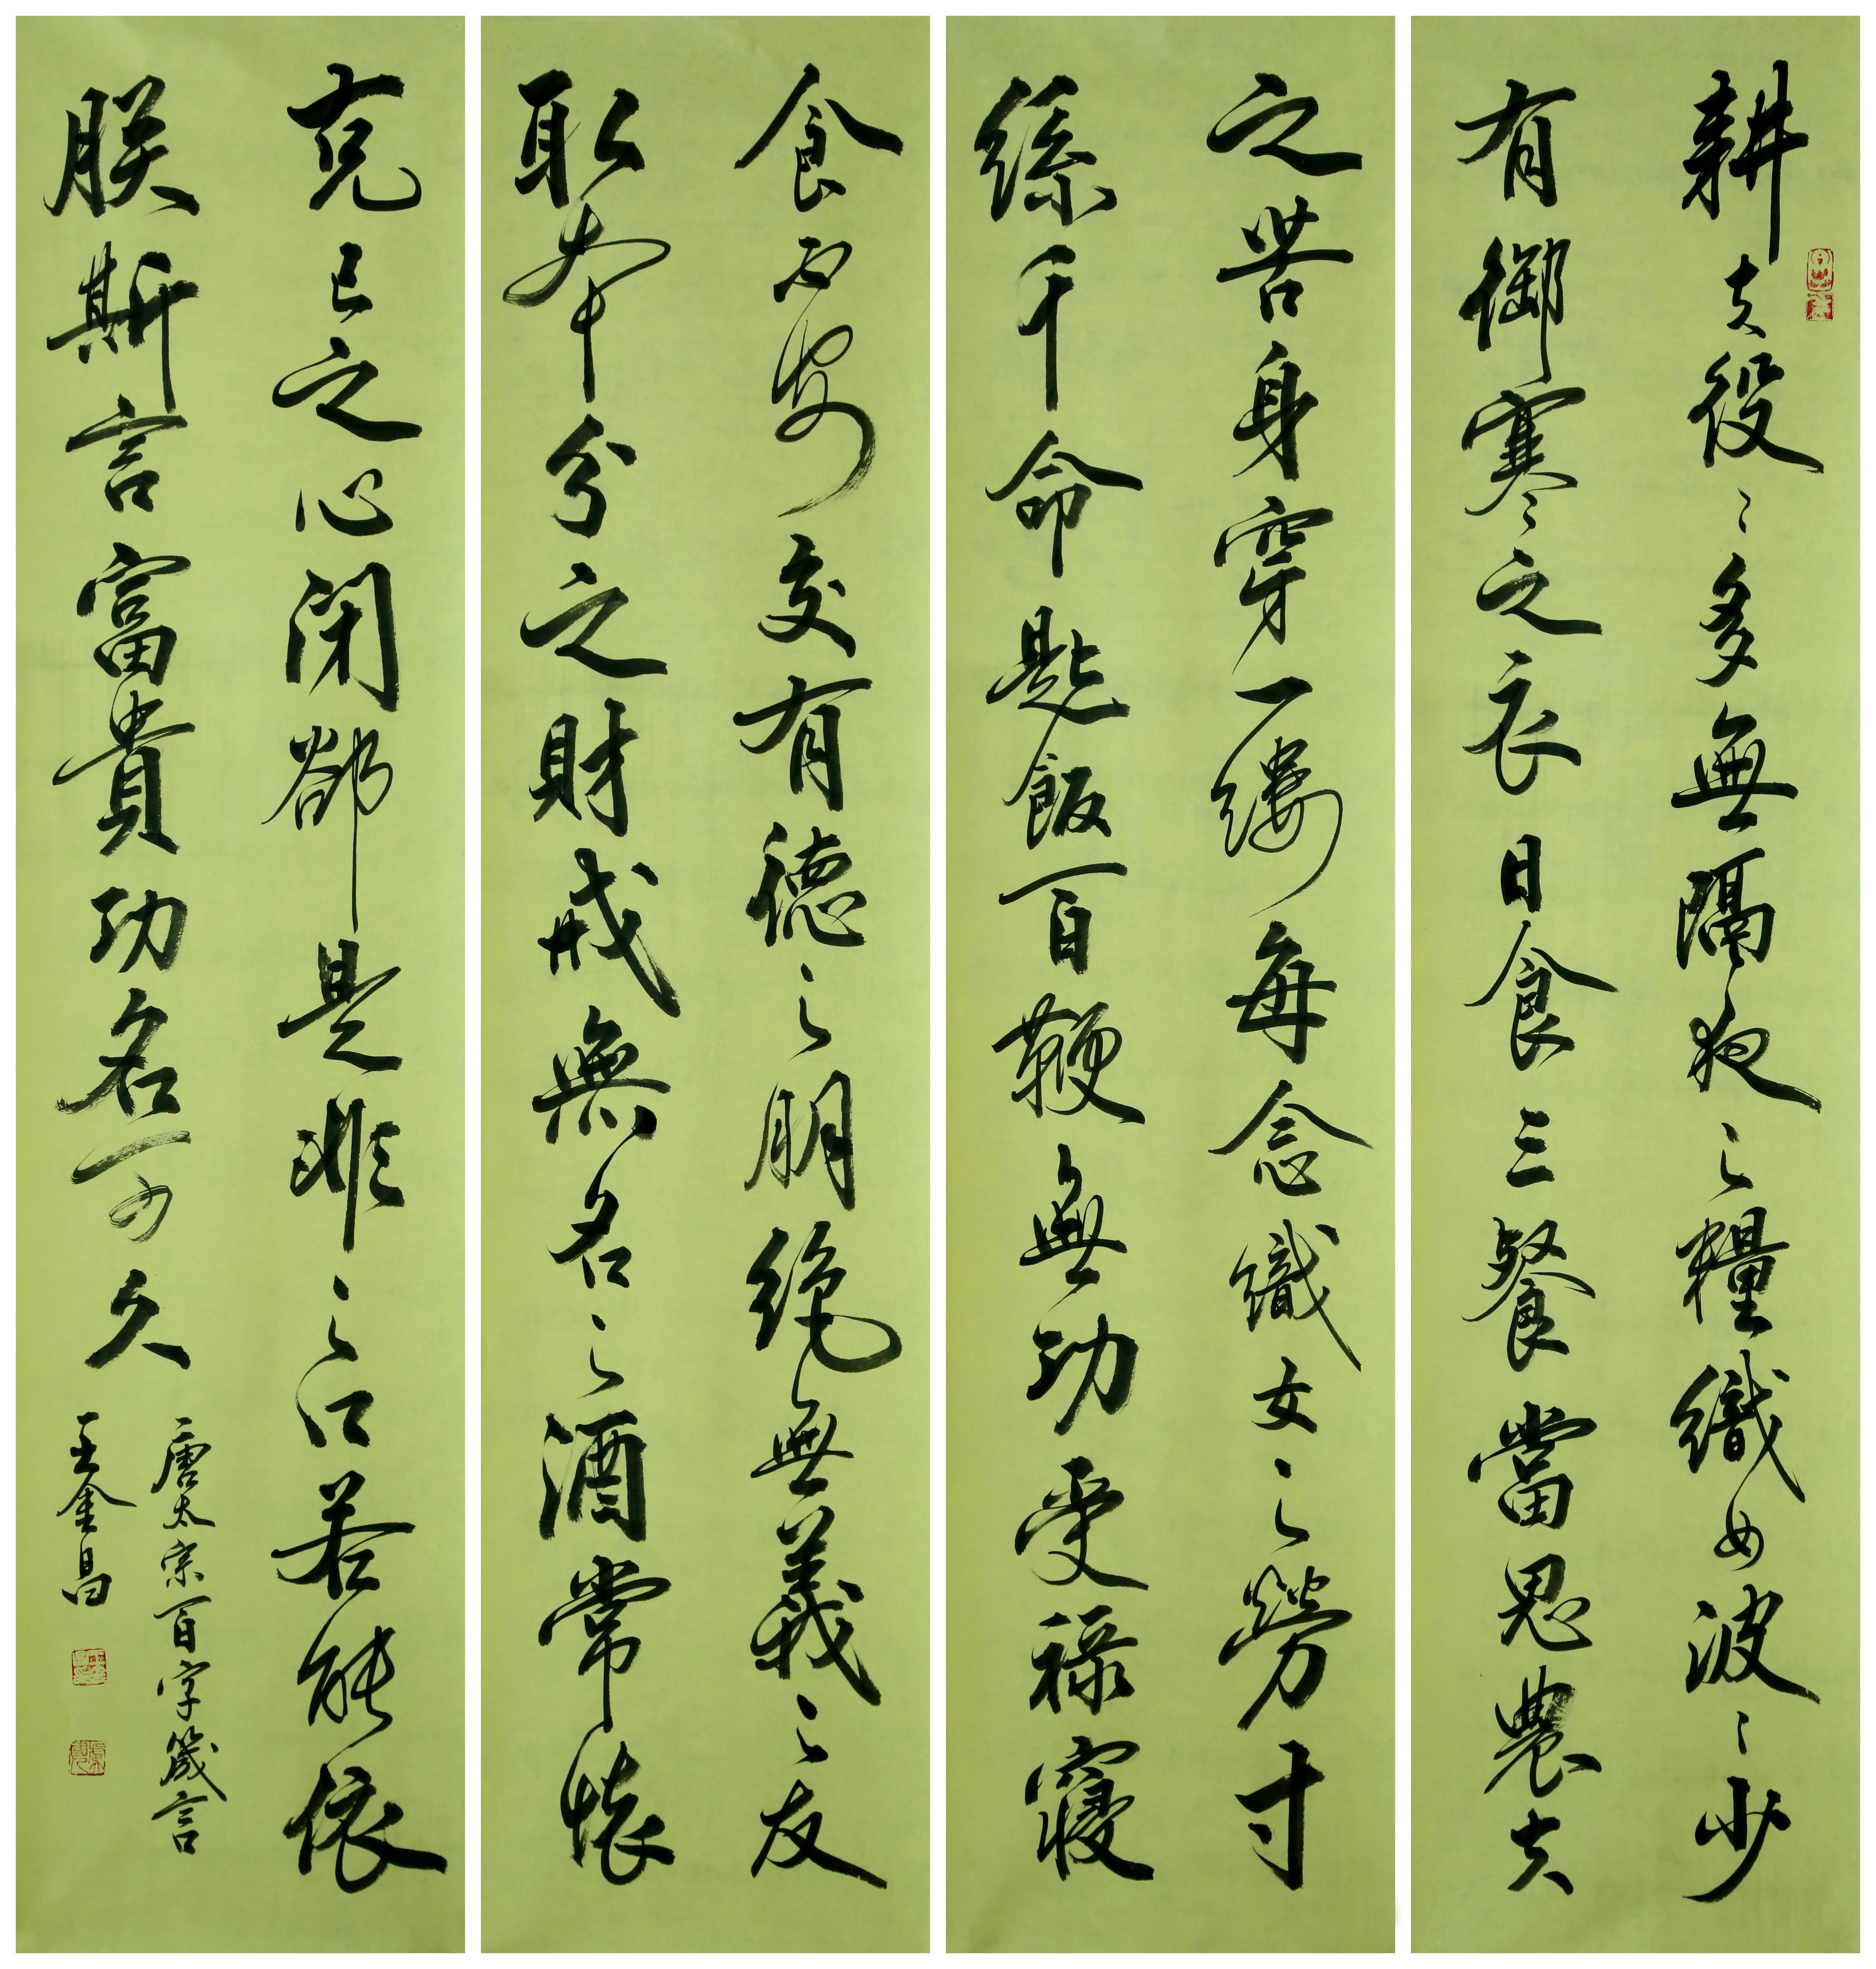 耕夫役〻多無隔夜之糧織女波〻少
有御寒〻之衣日食三餐當思農夫
之苦身穿一縷每念織女之勞寸
絲千命匙飯百鞭無功受祿寢
食不安交有德之朋絕無義之友
取本分之財戒無名之酒常懷
克己之心闭郤是非之口若能依
朕斯言富貴功名可久
唐太宗百字箴言
王金昌